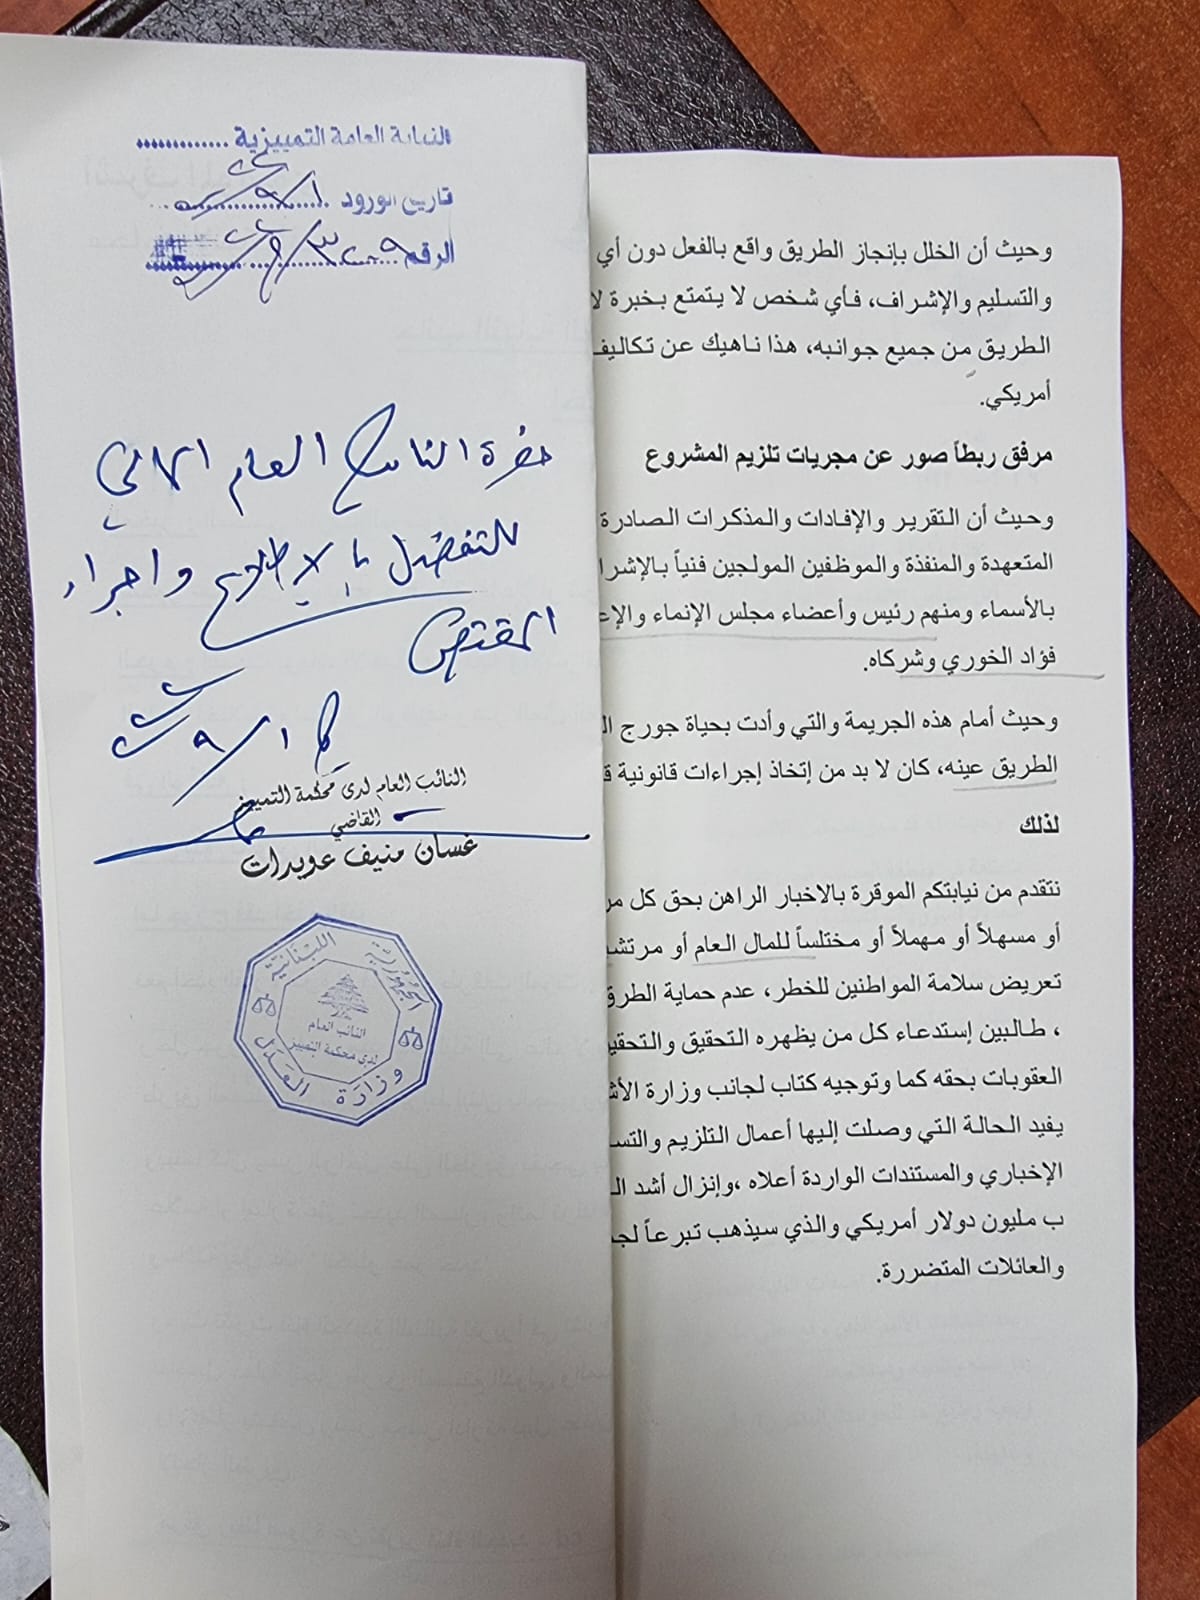 النيابة العامة التمييزية
تاريخ الورود
الرقم
حضرة النائب العام المالي
للتفضل بالاطلاع واجراء
المقتضى
النائب العام لدى محكمة التمييز
القاضي
غسان منيف عويدات
الجمهورية اللبنانية
النائب العام
لدى محكمة التمييز
وزارة العدل
وحيث أن الخلل بإنجاز الطريق واقع بالفعل دون أي
والتسليم والإشراف، فأي شخص لا يتمتع بخبرة
الطريق من جميع جوانبه، هذا ناهيك عن تكاليف
أمريكي.
مرفق ربطاً صور عن مجريات تلزيم المشروع
وحيث أن التقرير والإفادات والمذكرات الصادرة
المتعهدة والمنفذة والموظفين المولجين فنياً
بالأسماء ومنهم رئيس وأعضاء مجلس الإنماء
فؤاد الخوري وشركاه.
وحيث أمام هذه الجريمة والتي وأدت بحياة جورج
الطريق عينه، كان لا بد من إتخاذ إجراءات قانونية
لذلك
نتقدم من نيابتكم الموقرة بالاخبار الراهن بحق كل
أو مسهلاً أو مهملاً أو مختلساً للمال العام أو
تعريض سلامة المواطنين للخطر، عدم حماية
، طالبين إستدعاء كل من يظهره التحقيق
العقوبات بحقه كما وتوجيه كتاب لجانب وزارة
يفيد الحالة التي وصلت إليها أعمال التلزيم
الإخباري والمستندات الواردة أعلاه ،وإنزال أشد
ب مليون دولار أمريكي والذي سيذهب تبرعاً
والعائلات المتضررة.